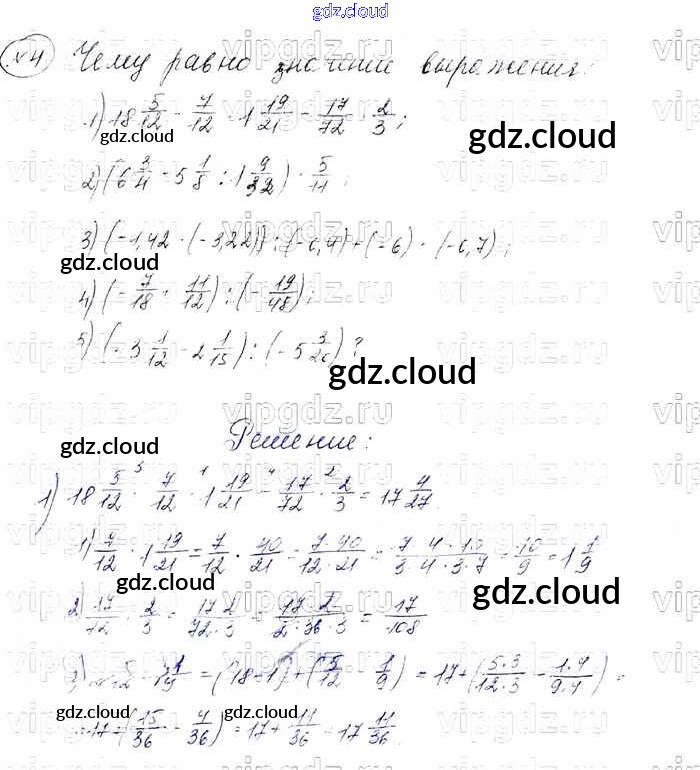 gdz.cloud
№4 Чему равно значение выражения:
1) 18 5/12 - 7/12 · 1 19/21 - 17/72 · 2/3;
gdz.cloud
2) (6 3/4 - 5 1/8 : 1 9/32) · 5/11;
3) (-1,42 · (-3,22)) : (-0,4) + (-6) · (-0,7);
gdz.cloud
4) (-7/18 · 11/12) : (-19/48);
5) (-3 1/12 - 2 1/15) : (-5 3/20)?
gdz.cloud
Решение:
gdz.cloud
1) 18 5/12 - 7/12 · 1 19/21 - 17/72 · 2/3 = 17 4/27
1) 7/12 · 1 19/21 = 7/12 · 40/21 = 7·40/12·21 = 7·4·10/3·4·3·7 = 10/9 = 1 1/9
gdz.cloud gdz.cloud
2) 17/72 · 2/3 = 17·2/72·3 = 17·2/2·36·3 = 17/108
= (18-1) + (5/12 - 1/9) = 17 + (5·3/12·3 - 1·4/9·4) =
gdz.cloud gdz.cloud
= 17 + (15/36 - 4/36) = 17 + 11/36 = 17 11/36